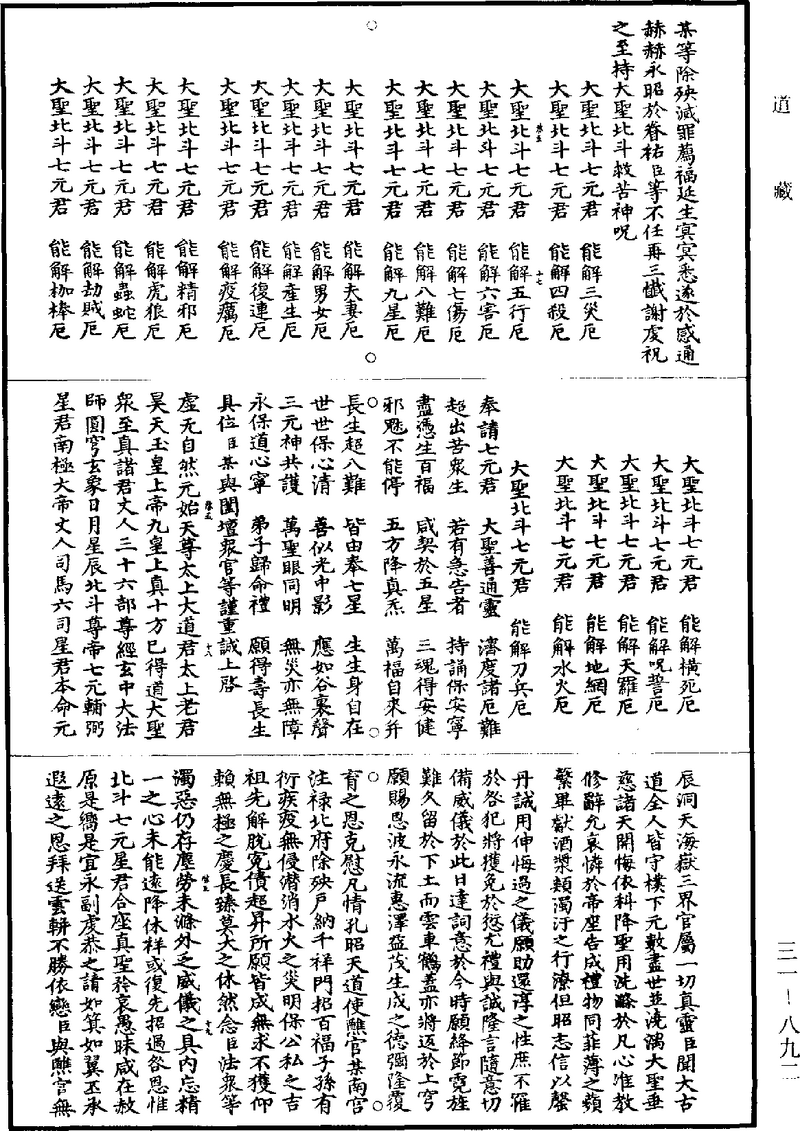 道藏
某等除殃滅罪薦福延生冥冥悉遂於感通
赫赫永昭於眷祐臣等不任再三懺謝虔祝
之至持大聖北斗救苦神呪
大聖北斗七元君 能解三災厄
大聖北斗七元君 能解四殺厄
大聖北斗七元君 能解五行厄
大聖北斗七元君 能解六害厄
大聖北斗七元君 能解七傷厄
大聖北斗七元君 能解八難厄
大聖北斗七元君 能解九星厄
大聖北斗七元君 能解夫妻厄
大聖北斗七元君 能解男女厄
大聖北斗七元君 能解產生厄
大聖北斗七元君 能解復連厄
大聖北斗七元君 能解疫癘厄
大聖北斗七元君 能解精邪厄
大聖北斗七元君 能解虎狼厄
大聖北斗七元君 能解蟲蛇厄
大聖北斗七元君 能解劫賊厄
大聖北斗七元君 能解枷棒厄
大聖北斗七元君 能解橫死厄
大聖北斗七元君 能解呪誓厄
大聖北斗七元君 能解天羅厄
大聖北斗七元君 能解地網厄
大聖北斗七元君 能解水火厄
大聖北斗七元君 能解刀兵厄
奉請七元君 大聖善通靈 濟度諸厄難
超出苦衆生 若有急告者 持誦保安寧
盡憑生百福 咸契於五星 三魂得安健
邪魅不能停 五方降真炁 萬福自來并
長生超八難 皆由奉七星 生生身自在
世世保心清 善似光中影 應如谷裏聲
三元神共護 萬聖眼同明 無災亦無障
永保道心寧 弟子歸命禮 願得壽長生
具位臣某與闔壇衆官等謹重誠上啓
虛无自然元始天尊太上大道君太上老君
昊天玉皇上帝九皇上真十方已得道大聖
衆至真諸君丈人三十六部尊經玄中大法
師圓穹玄象日月星辰北斗尊帝七元輔弼
星君南極大帝丈人司馬六司星君本命元
辰洞天海嶽三界官屬一切真靈臣聞大古
道全人皆守樸下元數盡世並澆漓大聖垂
慈諸天開悔依科降聖用洗滌於凡心准教
修辭允哀憐於帝座告成禮物同菲薄之蘋
蘩畢獻酒漿類濁汙之行潦但昭志信以罄
丹誠用伸悔過之儀願助還淳之性庶不罹
於咎犯將獲免於愆尤禮與誠隆言隨意切
備威儀於此日達詞意於今時願絳節霓旌
難久留於下土而雲車鶴蓋亦將迈於上穹
願賜恩波永流惠澤益茂生成之德彌隆覆
育之恩克慰凡情孔昭天道使醮官某南宮
注禄北府除殃戶納千祥門招百福子孫有
衍疾疫無侵潛消水火之災明保公私之吉
祖先解脫冤債超昇所願皆成無求不獲仰
賴無極之慶長臻莫大之休然念臣法衆等
濁惡仍存塵勞未滌外乏威儀之具內忘精
一之心未能遠降休祥或復先招過咎思惟
北斗七元星君合座真聖矜哀愚昧咸在赦
原是嚮是宜永副虔恭之請如箕如翼丕承
遐遠之恩拜送雲軿不勝依戀臣與醮官無
三一—八九二